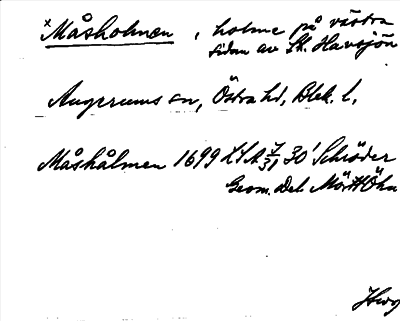 ×Måsholmen, holme på västra
sidan av St. Havsjön
Augerums sn, Östra hd, Blek. l.
Måshålmen 1699 LSA 30' Schröder
Geom. Del.